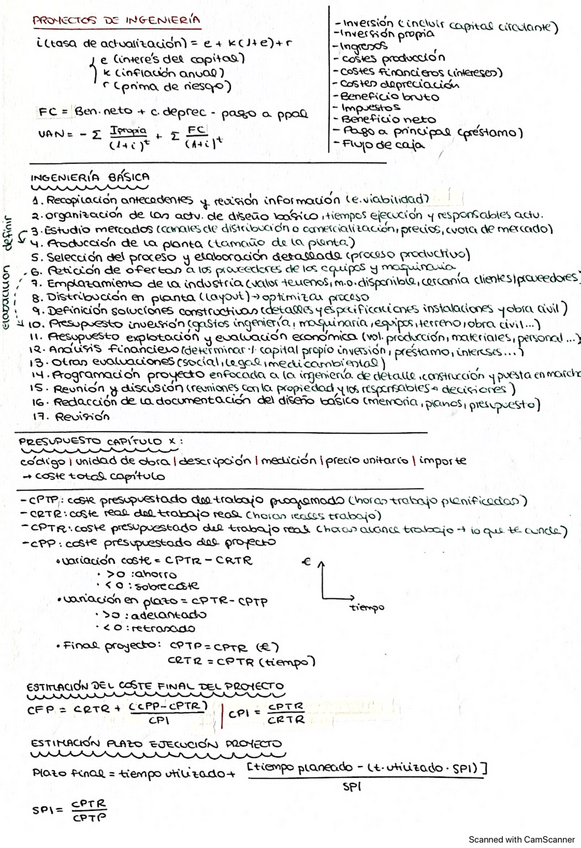 PROYECTOS DE INGENIERÍA
i (tasa de actualización) = e + k(1+e) + r
e (interés del capital)
k (inflación anual)
r (prima de riesgo)
FC = Ben. neto + c. deprec - pago a ppal
VAN = - Σ Ipropia/(1+i)^t + Σ FC/(1+i)^t
- Inversión (incluir capital circulante)
- Inversión propia
- Ingresos
- Costes producción
- Costes financieros (intereses)
- Costes depreciación
- Beneficio bruto
- Impuestos
- Beneficio neto
- Pago a principal (préstamo)
- Flujo de caja
INGENIERÍA BÁSICA
1. Recopilación antecedentes y revisión información (e.viabilidad)
2. organización de las actv. de diseño básico, tiempos ejecución y responsables actv.
3. Estudio mercados (canales de distribución o comercialización, precios, cuota de mercado)
4. Producción de la planta (tamaño de la planta)
5. Selección del proceso y elaboración detallada (proceso productivo)
6. Petición de ofertas a los proveedores de los equipos y maquinaria
7. Emplazamiento de la industria (valor terrenos, m.o. disponible, cercanía clientes/proveedores)
8. Distribución en planta (layout) → optimizar proceso
9. Definición soluciones constructivas (detalles y especificaciones instalaciones y obra civil)
10. Presupuesto inversión (gastos ingeniería, maquinaria, equipos, terreno, obra civil...)
11. Presupuesto explotación y evaluación económica (vol. producción, materiales, personal...)
12. Análisis financiero (determinar % capital propio inversión, préstamo, intereses...)
13. Otras evaluaciones (social, legal, medioambiental)
14. Programación proyecto enfocada a la ingeniería de detalle, construcción y puesta en marcha
15. Reunión y discusión (reuniones con la propiedad y los responsables → decisiones)
16. Redacción de la documentación del diseño básico (memoria, planos, presupuesto)
17. Revisión
elaboración definir
PRESUPUESTO CAPÍTULO X:
código | unidad de obra | descripción | medición | precio unitario | importe
→ coste total capítulo
- CPTP: coste presupuestado del trabajo programado (horas trabajo planificadas)
- CRTR: coste real del trabajo real (horas reales trabajo)
- CPTR: coste presupuestado del trabajo real (horas avance trabajo → lo que te cunde)
- CPP: coste presupuestado del proyecto
• variación coste = CPTR - CRTR
• >0: ahorro
• <0: sobrecoste
• variación en plazo = CPTR - CPTP
• >0: adelantado
• <0: retrasado
• Final proyecto: CPTP = CPTR (€)
CRTR = CPTR (tiempo)
€
tiempo
ESTIMACIÓN DEL COSTE FINAL DEL PROYECTO
CFP = CRTR + (CPP-CPTR)/CPI | CPI = CPTR/CRTR
ESTIMACIÓN PLAZO EJECUCIÓN PROYECTO
Plazo final = tiempo utilizado + [tiempo planeado - (t. utilizado · SPI)]/SPI
SPI = CPTR/CPTP
Scanned with CamScanner